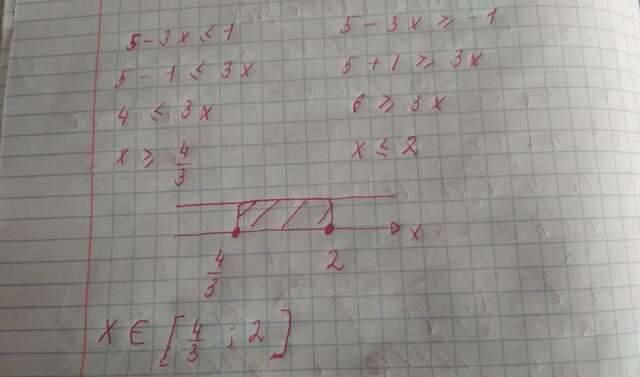 5 - 3x ≤ 1
5 - 1 ≤ 3x
4 ≤ 3x
x ≥ 4/3
5 - 3x ≥ -1
5 + 1 ≥ 3x
6 ≥ 3x
x ≤ 2
x
4/3 2
x ∈ [4/3 ; 2]